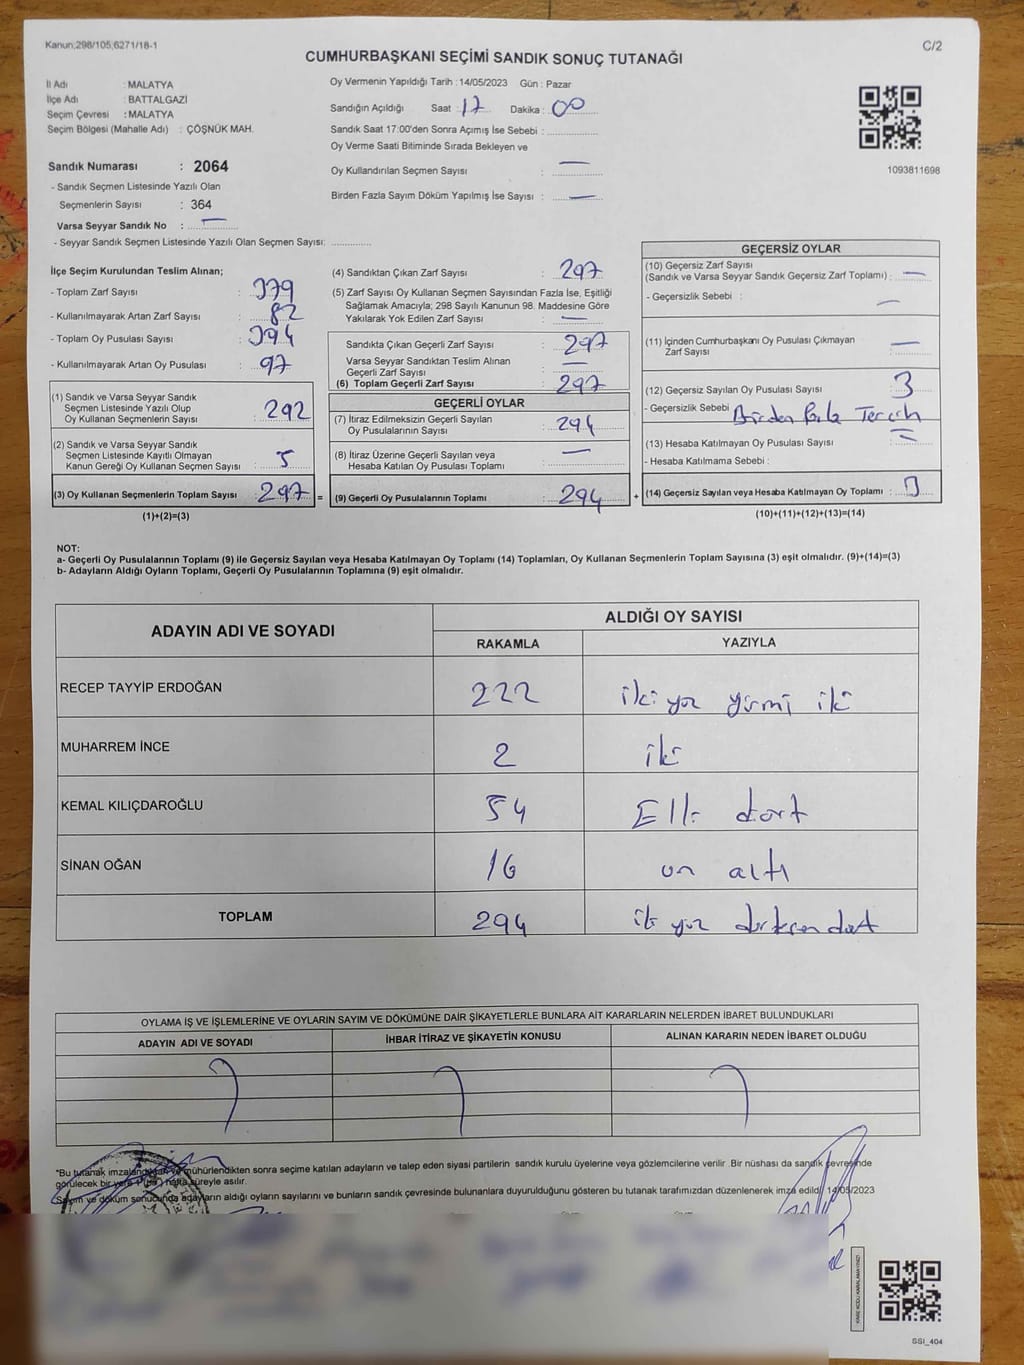 Kanun;298/105;6271/18-1
C/2
CUMHURBAŞKANI SEÇİMİ SANDIK SONUÇ TUTANAĞI
İl Adı : MALATYA
İlçe Adı : BATTALGAZİ
Seçim Çevresi : MALATYA
Seçim Bölgesi (Mahalle Adı) : ÇÖŞNÜK MAH.
Oy Vermenin Yapıldığı Tarih : 14/05/2023 Gün : Pazar
Sandığın Açıldığı Saat : 17 Dakika : 00
Sandık Saat 17:00'den Sonra Açımış İse Sebebi :
Oy Verme Saati Bitiminde Sırada Bekleyen ve
Oy Kullandırılan Seçmen Sayısı : —
Birden Fazla Sayım Döküm Yapılmış İse Sayısı : —
1093811698
Sandık Numarası : 2064
- Sandık Seçmen Listesinde Yazılı Olan
Seçmenlerin Sayısı : 364
Varsa Seyyar Sandık No : —
- Seyyar Sandık Seçmen Listesinde Yazılı Olan Seçmen Sayısı:
İlçe Seçim Kurulundan Teslim Alınan;
- Toplam Zarf Sayısı : 379
- Kullanılmayarak Artan Zarf Sayısı : 82
- Toplam Oy Pusulası Sayısı : 394
- Kullanılmayarak Artan Oy Pusulası : 97
(1) Sandık ve Varsa Seyyar Sandık
Seçmen Listesinde Yazılı Olup
Oy Kullanan Seçmenlerin Sayısı : 292
(2) Sandık ve Varsa Seyyar Sandık
Seçmen Listesinde Kayıtlı Olmayan
Kanun Gereği Oy Kullanan Seçmen Sayısı : 5
(3) Oy Kullanan Seçmenlerin Toplam Sayısı : 297 =
(1)+(2)=(3)
(4) Sandıktan Çıkan Zarf Sayısı : 297
(5) Zarf Sayısı Oy Kullanan Seçmen Sayısından Fazla İse, Eşitliği
Sağlamak Amacıyla; 298 Sayılı Kanunun 98. Maddesine Göre
Yakılarak Yok Edilen Zarf Sayısı : —
Sandıkta Çıkan Geçerli Zarf Sayısı : 297
Varsa Seyyar Sandıktan Teslim Alınan
Geçerli Zarf Sayısı : —
(6) Toplam Geçerli Zarf Sayısı : 297
GEÇERLİ OYLAR
(7) İtiraz Edilmeksizin Geçerli Sayılan
Oy Pusulalarının Sayısı : 294
(8) İtiraz Üzerine Geçerli Sayılan veya
Hesaba Katılan Oy Pusulası Toplamı : —
(9) Geçerli Oy Pusulalarının Toplamı : 294 +
GEÇERSİZ OYLAR
(10) Geçersiz Zarf Sayısı
(Sandık ve Varsa Seyyar Sandık Geçersiz Zarf Toplamı) : —
- Geçersizlik Sebebi : —
(11) İçinden Cumhurbaşkanı Oy Pusulası Çıkmayan
Zarf Sayısı : —
(12) Geçersiz Sayılan Oy Pusulası Sayısı : 3
- Geçersizlik Sebebi : Birden Fazla Tercih
(13) Hesaba Katılmayan Oy Pusulası Sayısı : —
- Hesaba Katılmama Sebebi :
(14) Geçersiz Sayılan veya Hesaba Katılmayan Oy Toplamı : 3
(10)+(11)+(12)+(13)=(14)
NOT:
a- Geçerli Oy Pusulalarının Toplamı (9) ile Geçersiz Sayılan veya Hesaba Katılmayan Oy Toplamı (14) Toplamları, Oy Kullanan Seçmenlerin Toplam Sayısına (3) eşit olmalıdır. (9)+(14)=(3)
b- Adayların Aldığı Oyların Toplamı, Geçerli Oy Pusulalarının Toplamına (9) eşit olmalıdır.
ADAYIN ADI VE SOYADI
ALDIĞI OY SAYISI
RAKAMLA YAZIYLA
RECEP TAYYİP ERDOĞAN 222 iki yüz yirmi iki
MUHARREM İNCE 2 iki
KEMAL KILIÇDAROĞLU 54 Elli dört
SİNAN OĞAN 16 on altı
TOPLAM 294 iki yüz doksan dört
OYLAMA İŞ VE İŞLEMLERİNE VE OYLARIN SAYIM VE DÖKÜMÜNE DAİR ŞİKAYETLERLE BUNLARA AİT KARARLARIN NELERDEN İBARET BULUNDUKLARI
ADAYIN ADI VE SOYADI İHBAR İTİRAZ VE ŞİKAYETİN KONUSU ALINAN KARARIN NEDEN İBARET OLDUĞU
*Bu tutanak imzalandıktan ve mühürlendikten sonra seçime katılan adayların ve talep eden siyasi partilerin sandık kurulu üyelerine veya gözlemcilerine verilir. Bir nüshası da sandık çevresinde
görülecek bir yere 1 (bir) hafta süreyle asılır.
Sayım ve döküm sonucunda adayların aldığı oyların sayılarını ve bunların sandık çevresinde bulunanlara duyurulduğunu gösteren bu tutanak tarafımızdan düzenlenerek imza edildi. 14/05/2023
SSI_404